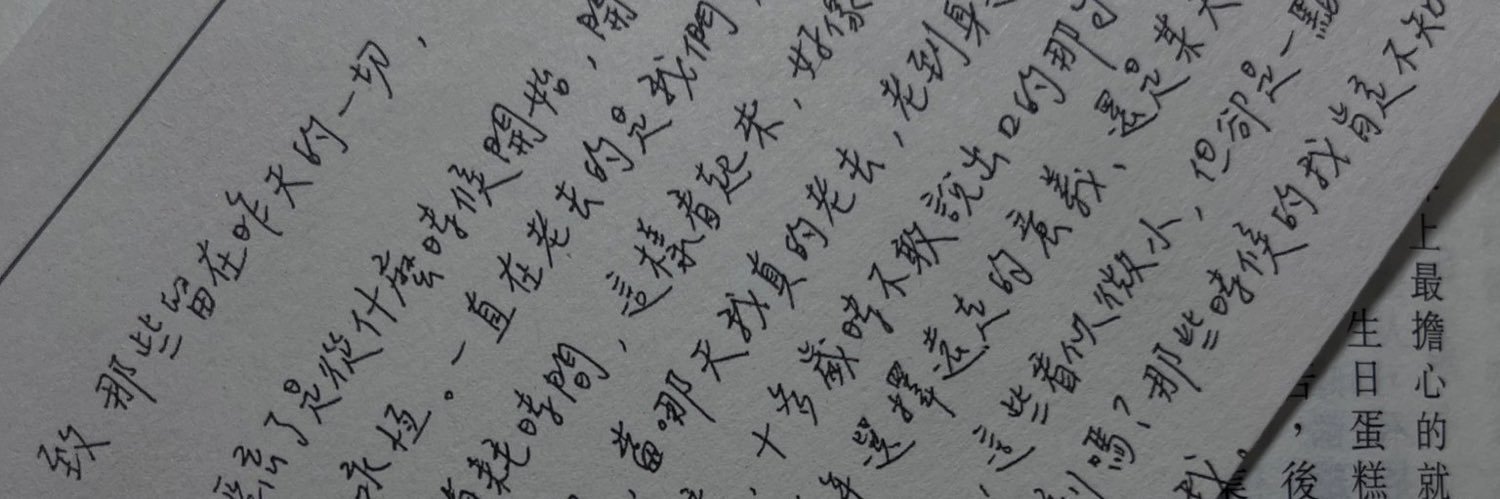 致 那些留在昨天的一切，
忘了是從什麼時候開始，開
永恆。一直在老去的是我們，
老時間，這樣看起來，好像
，當哪天我真的老去，老到身
十多歲時不敢說出口的那句
選擇遠走的意義、還是某天
，這些看似微小，但卻是一點
到嗎？那些時候的我肯定不知
我。
上最擔心的就
生日蛋糕
，後